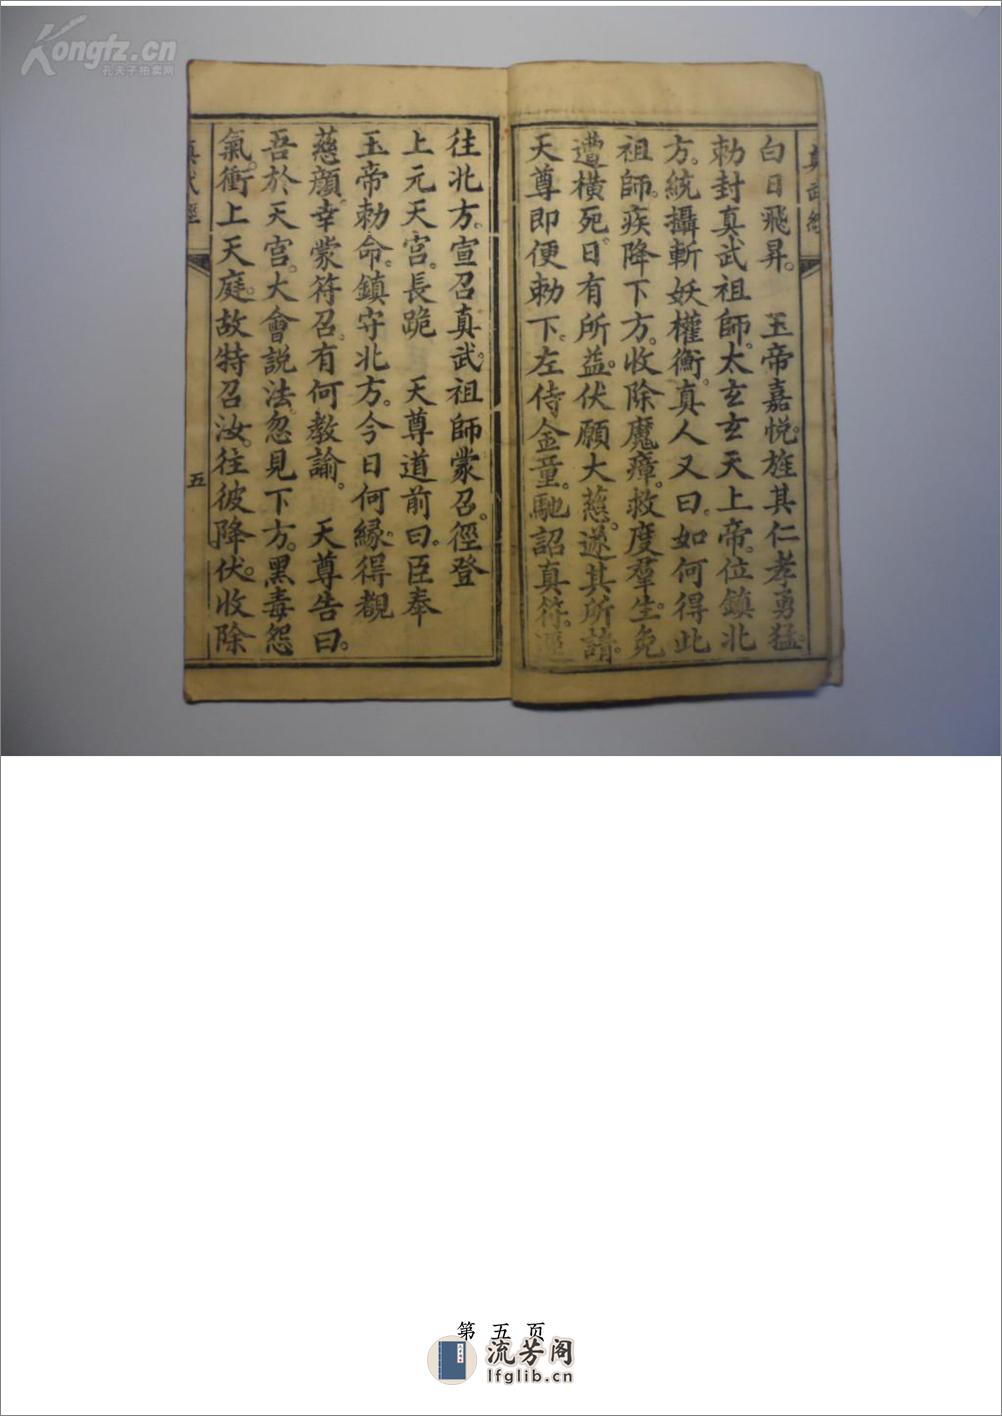 Kongfz.cn
孔夫子拍卖网
真武經
白日飛昇。　玉帝嘉悅。旌其仁孝勇猛。
勅封真武祖師。太玄玄天上帝。位鎮北
方。統攝斬妖權衡。真人又曰。如何得此
祖師。疾降下方。收除魔瘴。救度羣生。免
遭橫死。日有所益。伏願大慈。遂其所請。
天尊即便勅下。左侍金童。馳詔真符。逕
往北方。宣召真武祖師。蒙召。徑登
上元天宮。長跪　天尊道前曰。臣奉
玉帝勅命。鎮守北方。今日何緣。得覩
慈顏。幸蒙符召。有何教諭。　天尊告曰。
吾於天宮。大會說法。忽見下方。黑毒怨
氣。衝上天庭。故特召汝。往彼降伏。收除
真武經
五
第 五 页
流芳阁
lfglib.cn